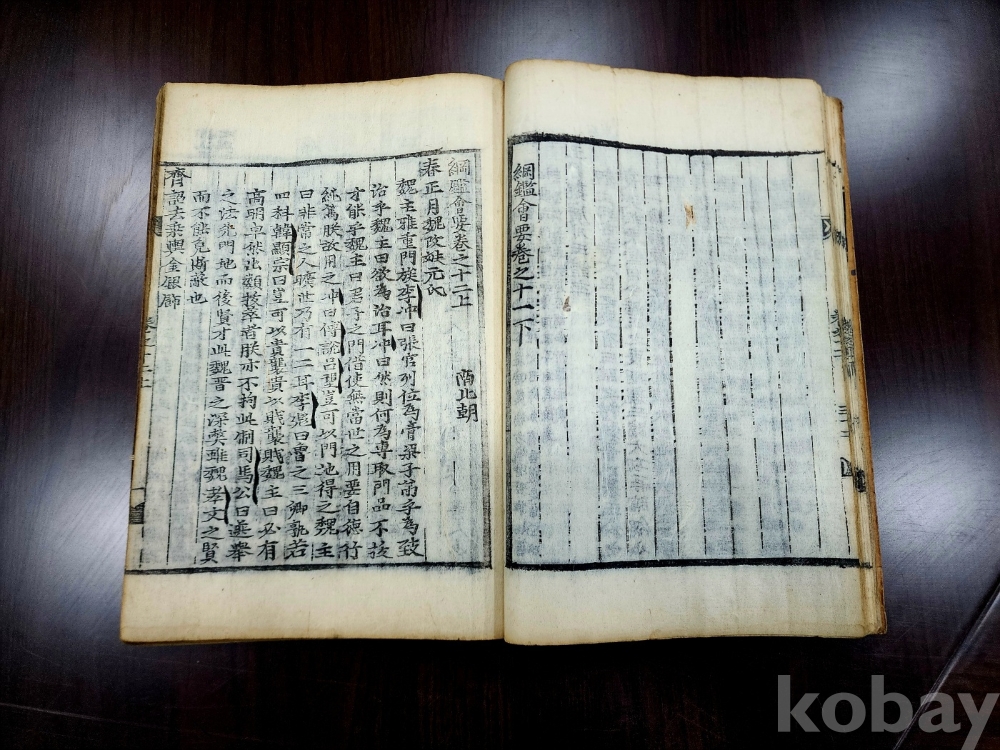 綱鑑會要卷之十一下
綱鑑會要卷之十二上 南北朝
春正月魏改姓元氏
魏主雅重門族李冲曰張官列位為膏粱子弟乎為致
治乎魏主曰欲為治耳冲曰然則何為專取門品不拔
才能乎魏主曰君子之門借使無當世之用要自德行
純篤朕故用之冲曰傅說呂望豈可以門地得之魏主
曰非常之人曠世乃有一二耳李彪曰魯之三卿孰若
四科韓顯宗曰豈可以貴襲貴以賤襲賤魏主曰必有
高明卓然出類拔萃者朕亦不拘此制司馬公曰選舉
之法先門地而後賢才此魏晋之深弊雖魏孝文之賢
而不能免斯敝也
齊詔去乘輿金銀飾
kobay